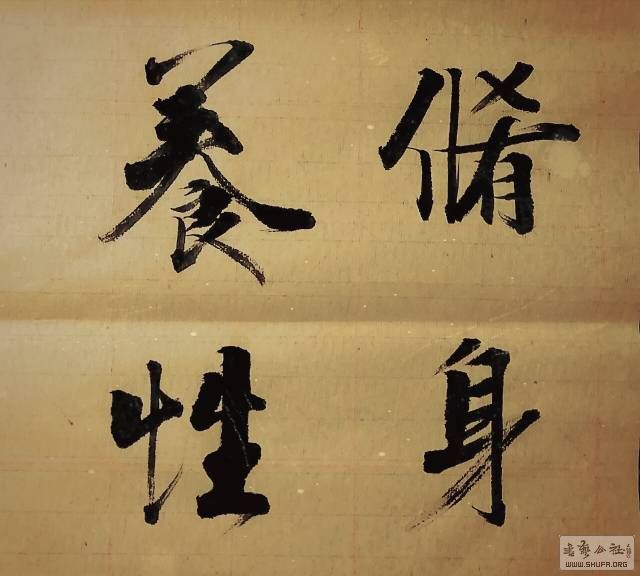 脩身
養性
公社
WWW.SHUFA.ORG